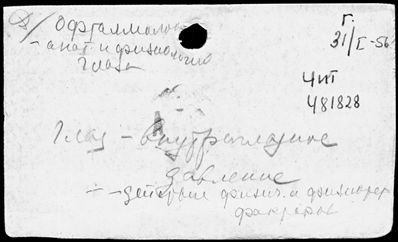 Д/ Офталмолог
- анат. и физиология
глаза
Г.
31/I-56
Чит
481828
Глаз - внутриглазное
давление
- - действие физич. и физиотер.
факторов